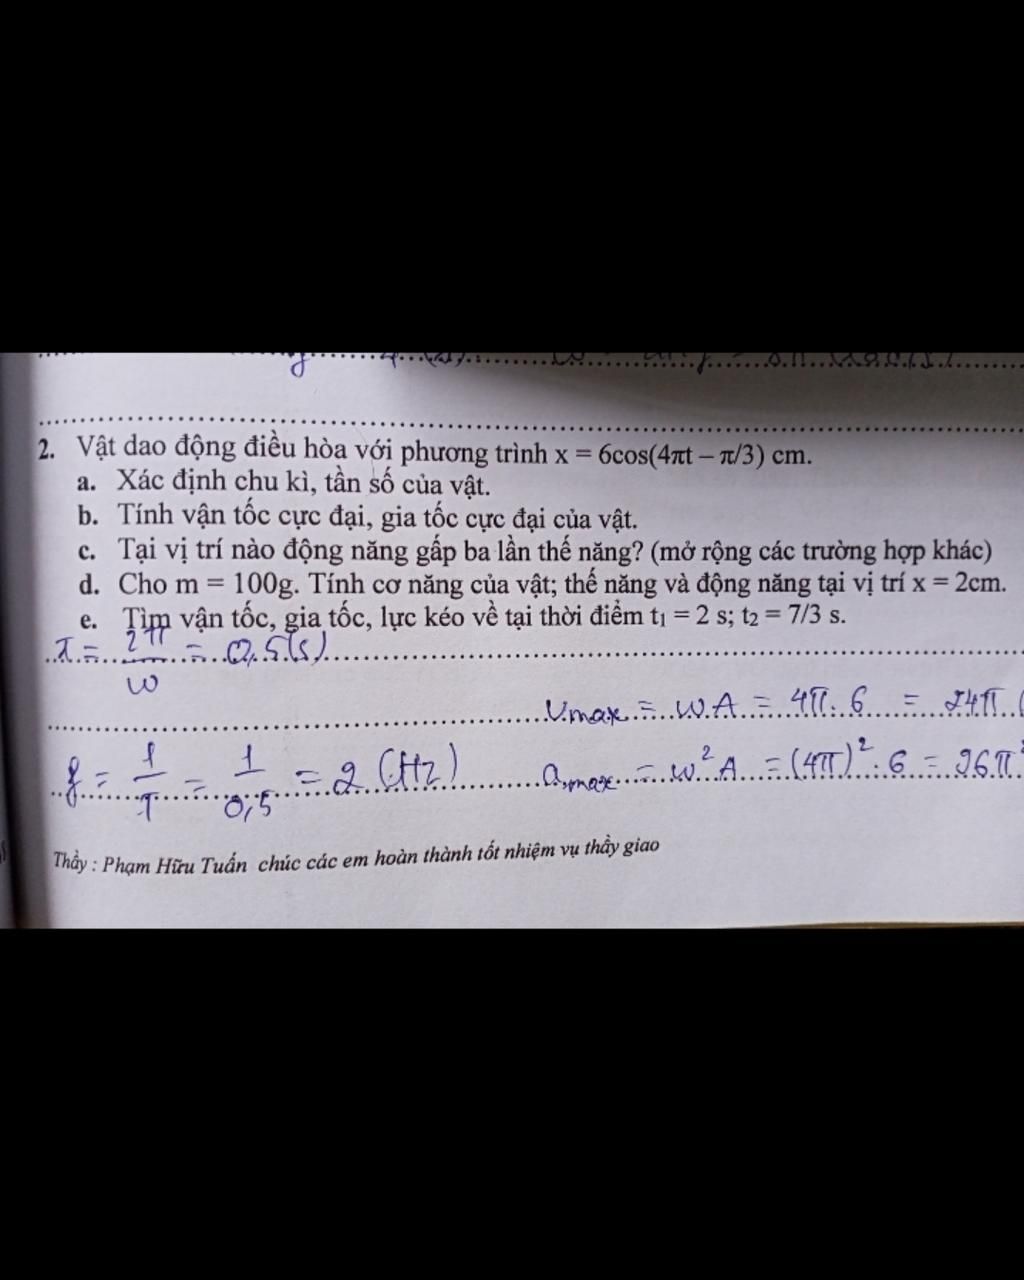 2. Vật dao động điều hòa với phương trình x = 6cos(4πt – π/3) cm.
a. Xác định chu kì, tần số của vật.
b. Tính vận tốc cực đại, gia tốc cực đại của vật.
c. Tại vị trí nào động năng gấp ba lần thế năng? (mở rộng các trường hợp khác)
d. Cho m = 100g. Tính cơ năng của vật; thế năng và động năng tại vị trí x = 2cm.
e. Tìm vận tốc, gia tốc, lực kéo về tại thời điểm t₁ = 2 s; t₂ = 7/3 s.
T = 2π/ω = 0,5(s)
vmax = ω.A = 4π.6 = 24π (
f = 1/T = 1/0,5 = 2 (Hz) amax = ω²A = (4π)².6 = 96π²
Thầy : Phạm Hữu Tuấn chúc các em hoàn thành tốt nhiệm vụ thầy giao